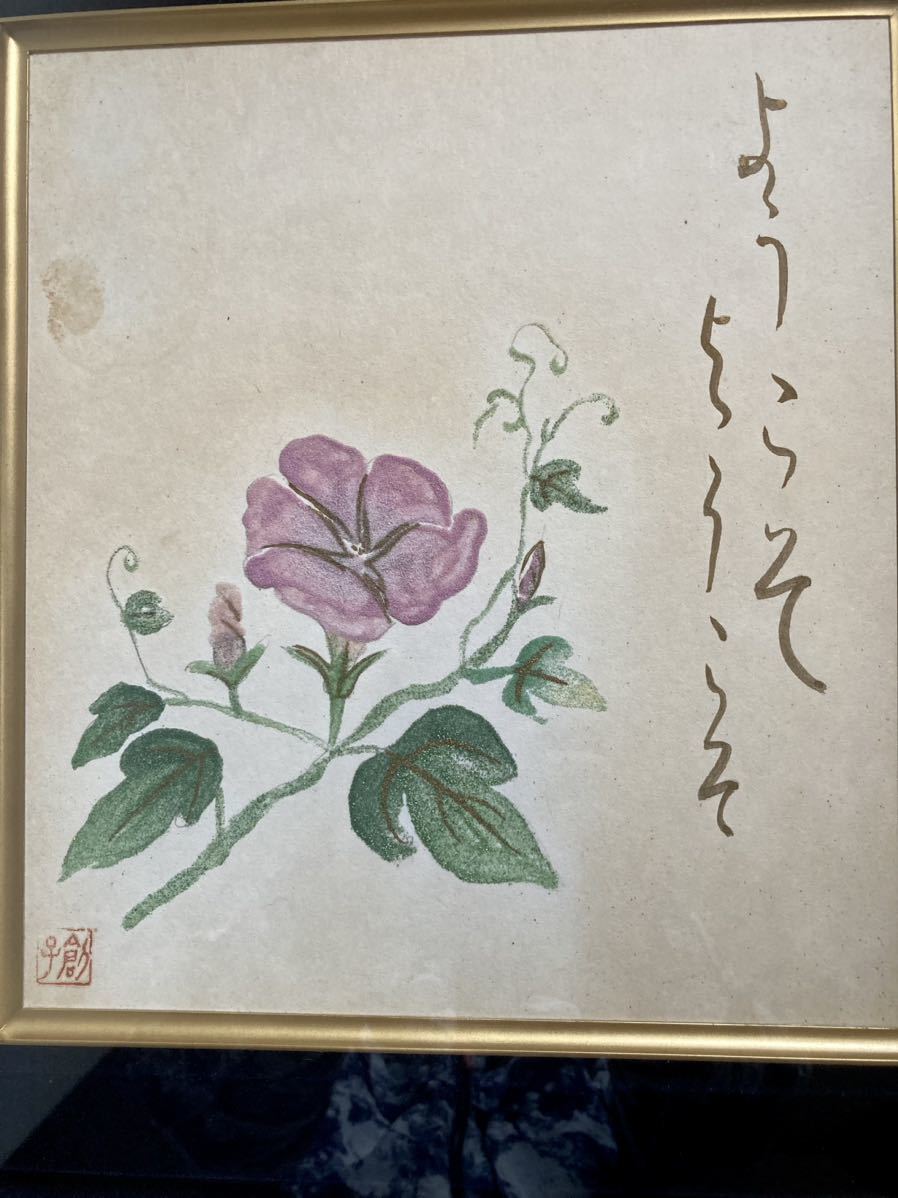 ようこそ
ようこそ
創子